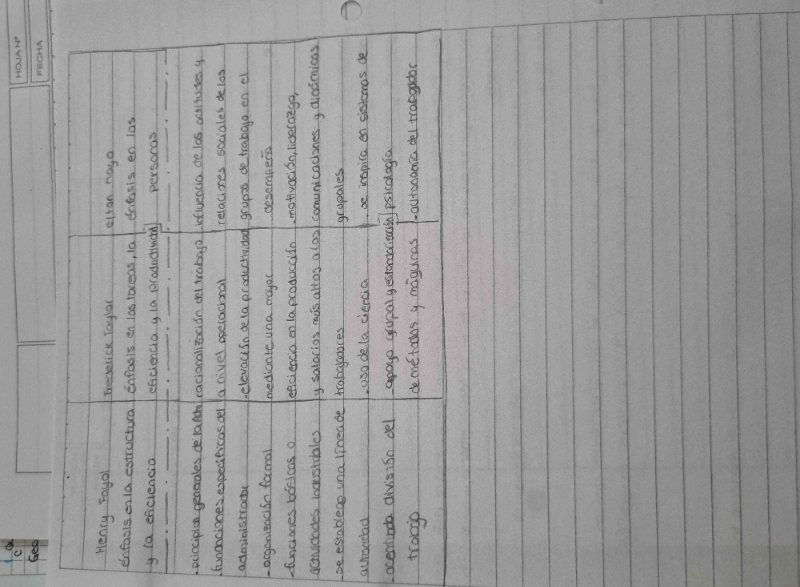 HOJA N°
FECHA
Henry Fayol
énfasis en la estructura
y la eficiencia
-principios generales de la
-funciones específicas del
administrador
-organización formal
-funciones básicas o
actividades industriales
-se establece una línea de
autoridad
-acentuada división del
trabajo
Frederick Taylor
énfasis en las tareas, la
eficiencia y la productividad
racionalización del trabajo
a nivel operacional
-elevación de la productividad
mediante una mayor
eficiencia en la producción
y salarios más altos a los
trabajadores
-uso de la ciencia
-apoyo grupal y estandarización
de métodos y máquinas
elton mayo
énfasis en las
personas
influencia de las actitudes y
relaciones sociales de los
grupos de trabajo en el
desempeño
-motivación, liderazgo,
comunicaciones y dinámicas
grupales
-se inspira en sistemas de
psicología
-autonomía del trabajador
Geo